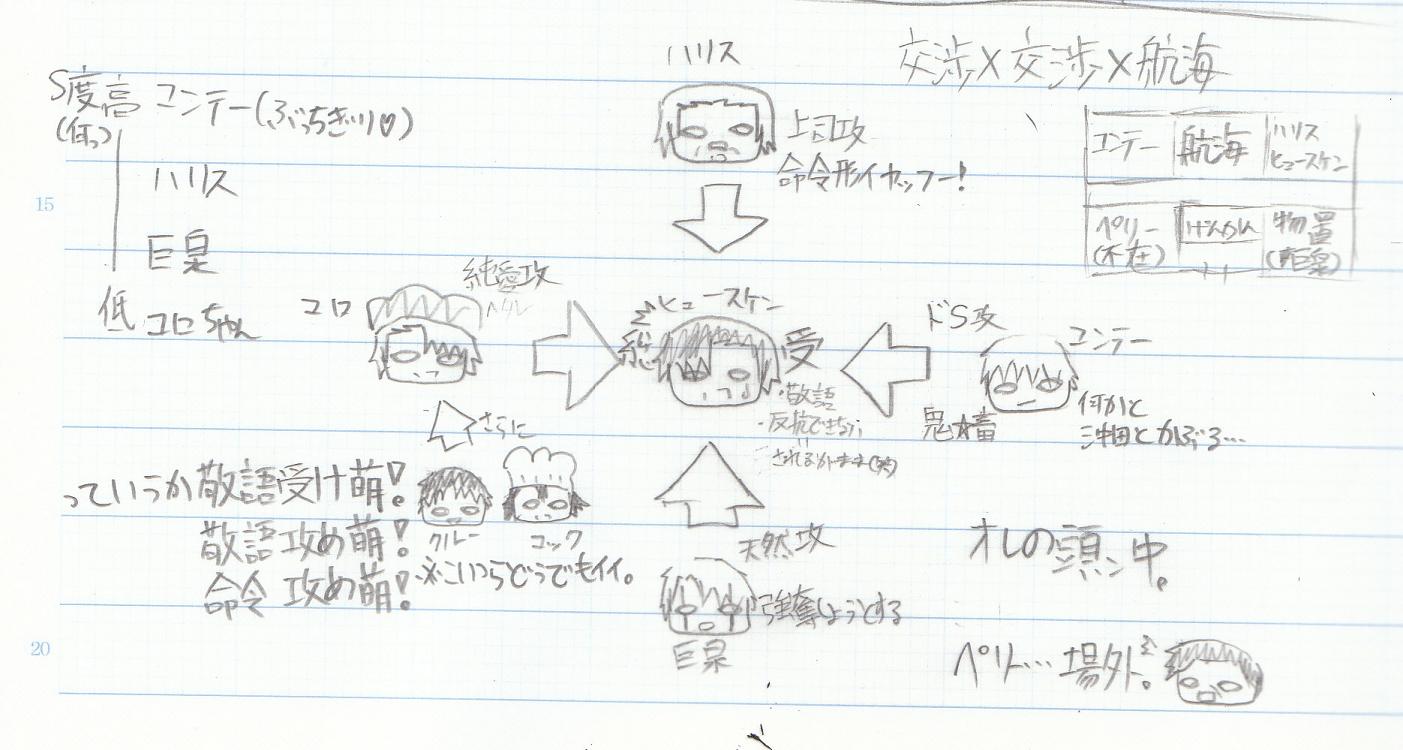 交渉×交渉×航海
S度高 コンテー(ぶっちぎり♡)
(何っ)
ハリス
巨泉
低 コロちゃん
15
ハリス
上司攻
命令形イヤッフー!
コンテー
航海
ハリス
ヒュースケン
ペリー
(不在)
げんかん
物置
(巨泉)
コロ
純愛攻
ヘタレ
ヒュースケン
総受
・敬語
・反抗できない
されるがまま(笑)
ドS攻
コンテー
鬼畜
何かと
沖田とかぶる…
さらに
クルー
コック
※こいつらどうでもイイ。
っていうか敬語受け萌!
敬語攻め萌!
命令攻め萌!
天然攻
強奪しようとする
巨泉
オレの頭ン中。
ペリー…場外。
20